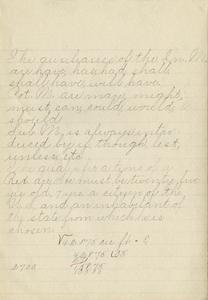 The auxiliaries of the In. M.
are have, has had, shall
shall have, will have
Pot. M. are may, might,
must, can, could, would &
should
Sub. M. is always intro
duced by if, though, lest,
unless, etc
Qualifications of a
Rep. are: he must be twenty five
yrs old, 7 yrs a citizen of the
U.S. and an inhabitant of
the state from which he is
chosen
2700